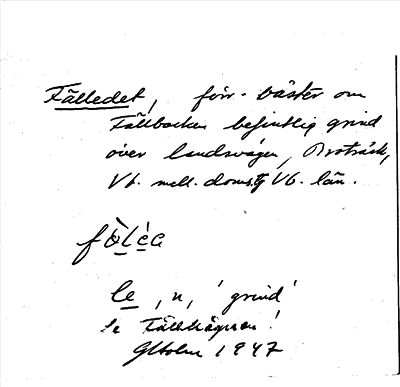 Fälledet, förr. väster om
Fällbacken befintlig grind
över landsvägen, Broträsk,
Vb. mell. doms. Vb. län.
le, n, 'grind'
se Fällhägnan!
GHolm 1947